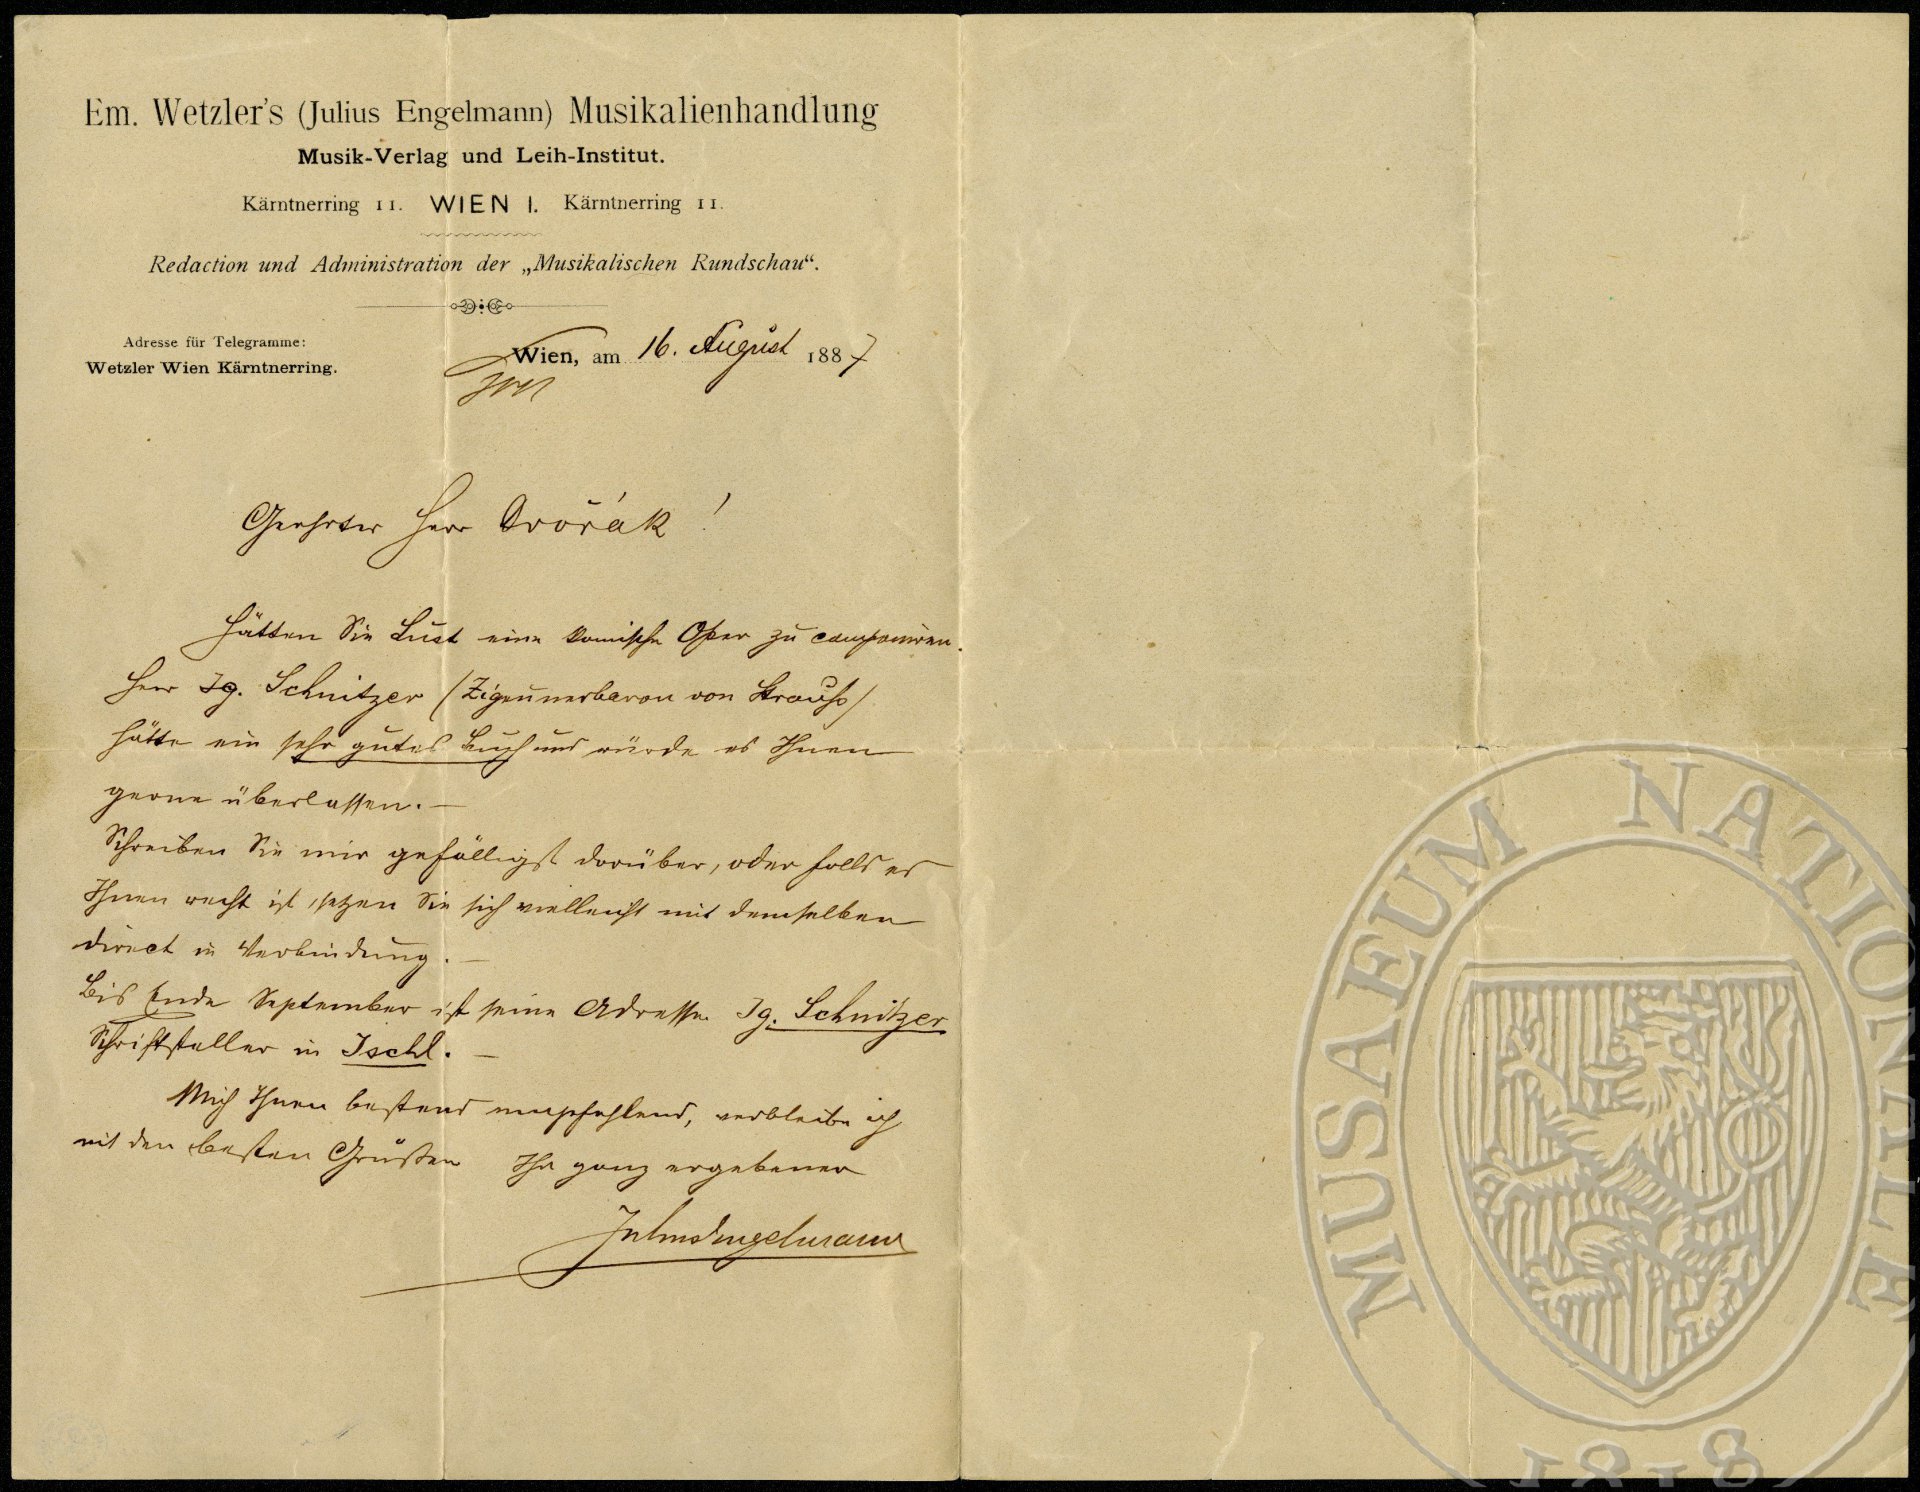 Em. Wetzler's (Julius Engelmann) Musikalienhandlung
Musik-Verlag und Leih-Institut.
Kärntnerring 11. WIEN I. Kärntnerring 11.
Redaction und Administration der „Musikalischen Rundschau“.
Adresse für Telegramme:
Wetzler Wien Kärntnerring.
Wien, am 16. August 1887
Geehrter Herr Dvořák!
Hätten Sie Lust eine komische Oper zu componiren.
Herr Ig. Schnitzer (Zigeunerbaron von Strauß)
hätte ein sehr gutes Buch und würde es Ihnen
gerne überlassen. —
Schreiben Sie mir gefälligst darüber, oder falls es
Ihnen recht ist, setzen Sie sich vielleicht mit demselben
direct in Verbindung. —
Bis Ende September ist seine Adresse Ig. Schnitzer
Schriftsteller in Ischl. —
Mich Ihnen bestens empfehlend, verbleibe ich
mit den besten Grüßen Ihr ganz ergebener
Julius Engelmann
MUSAEUM NATIONALE
1818